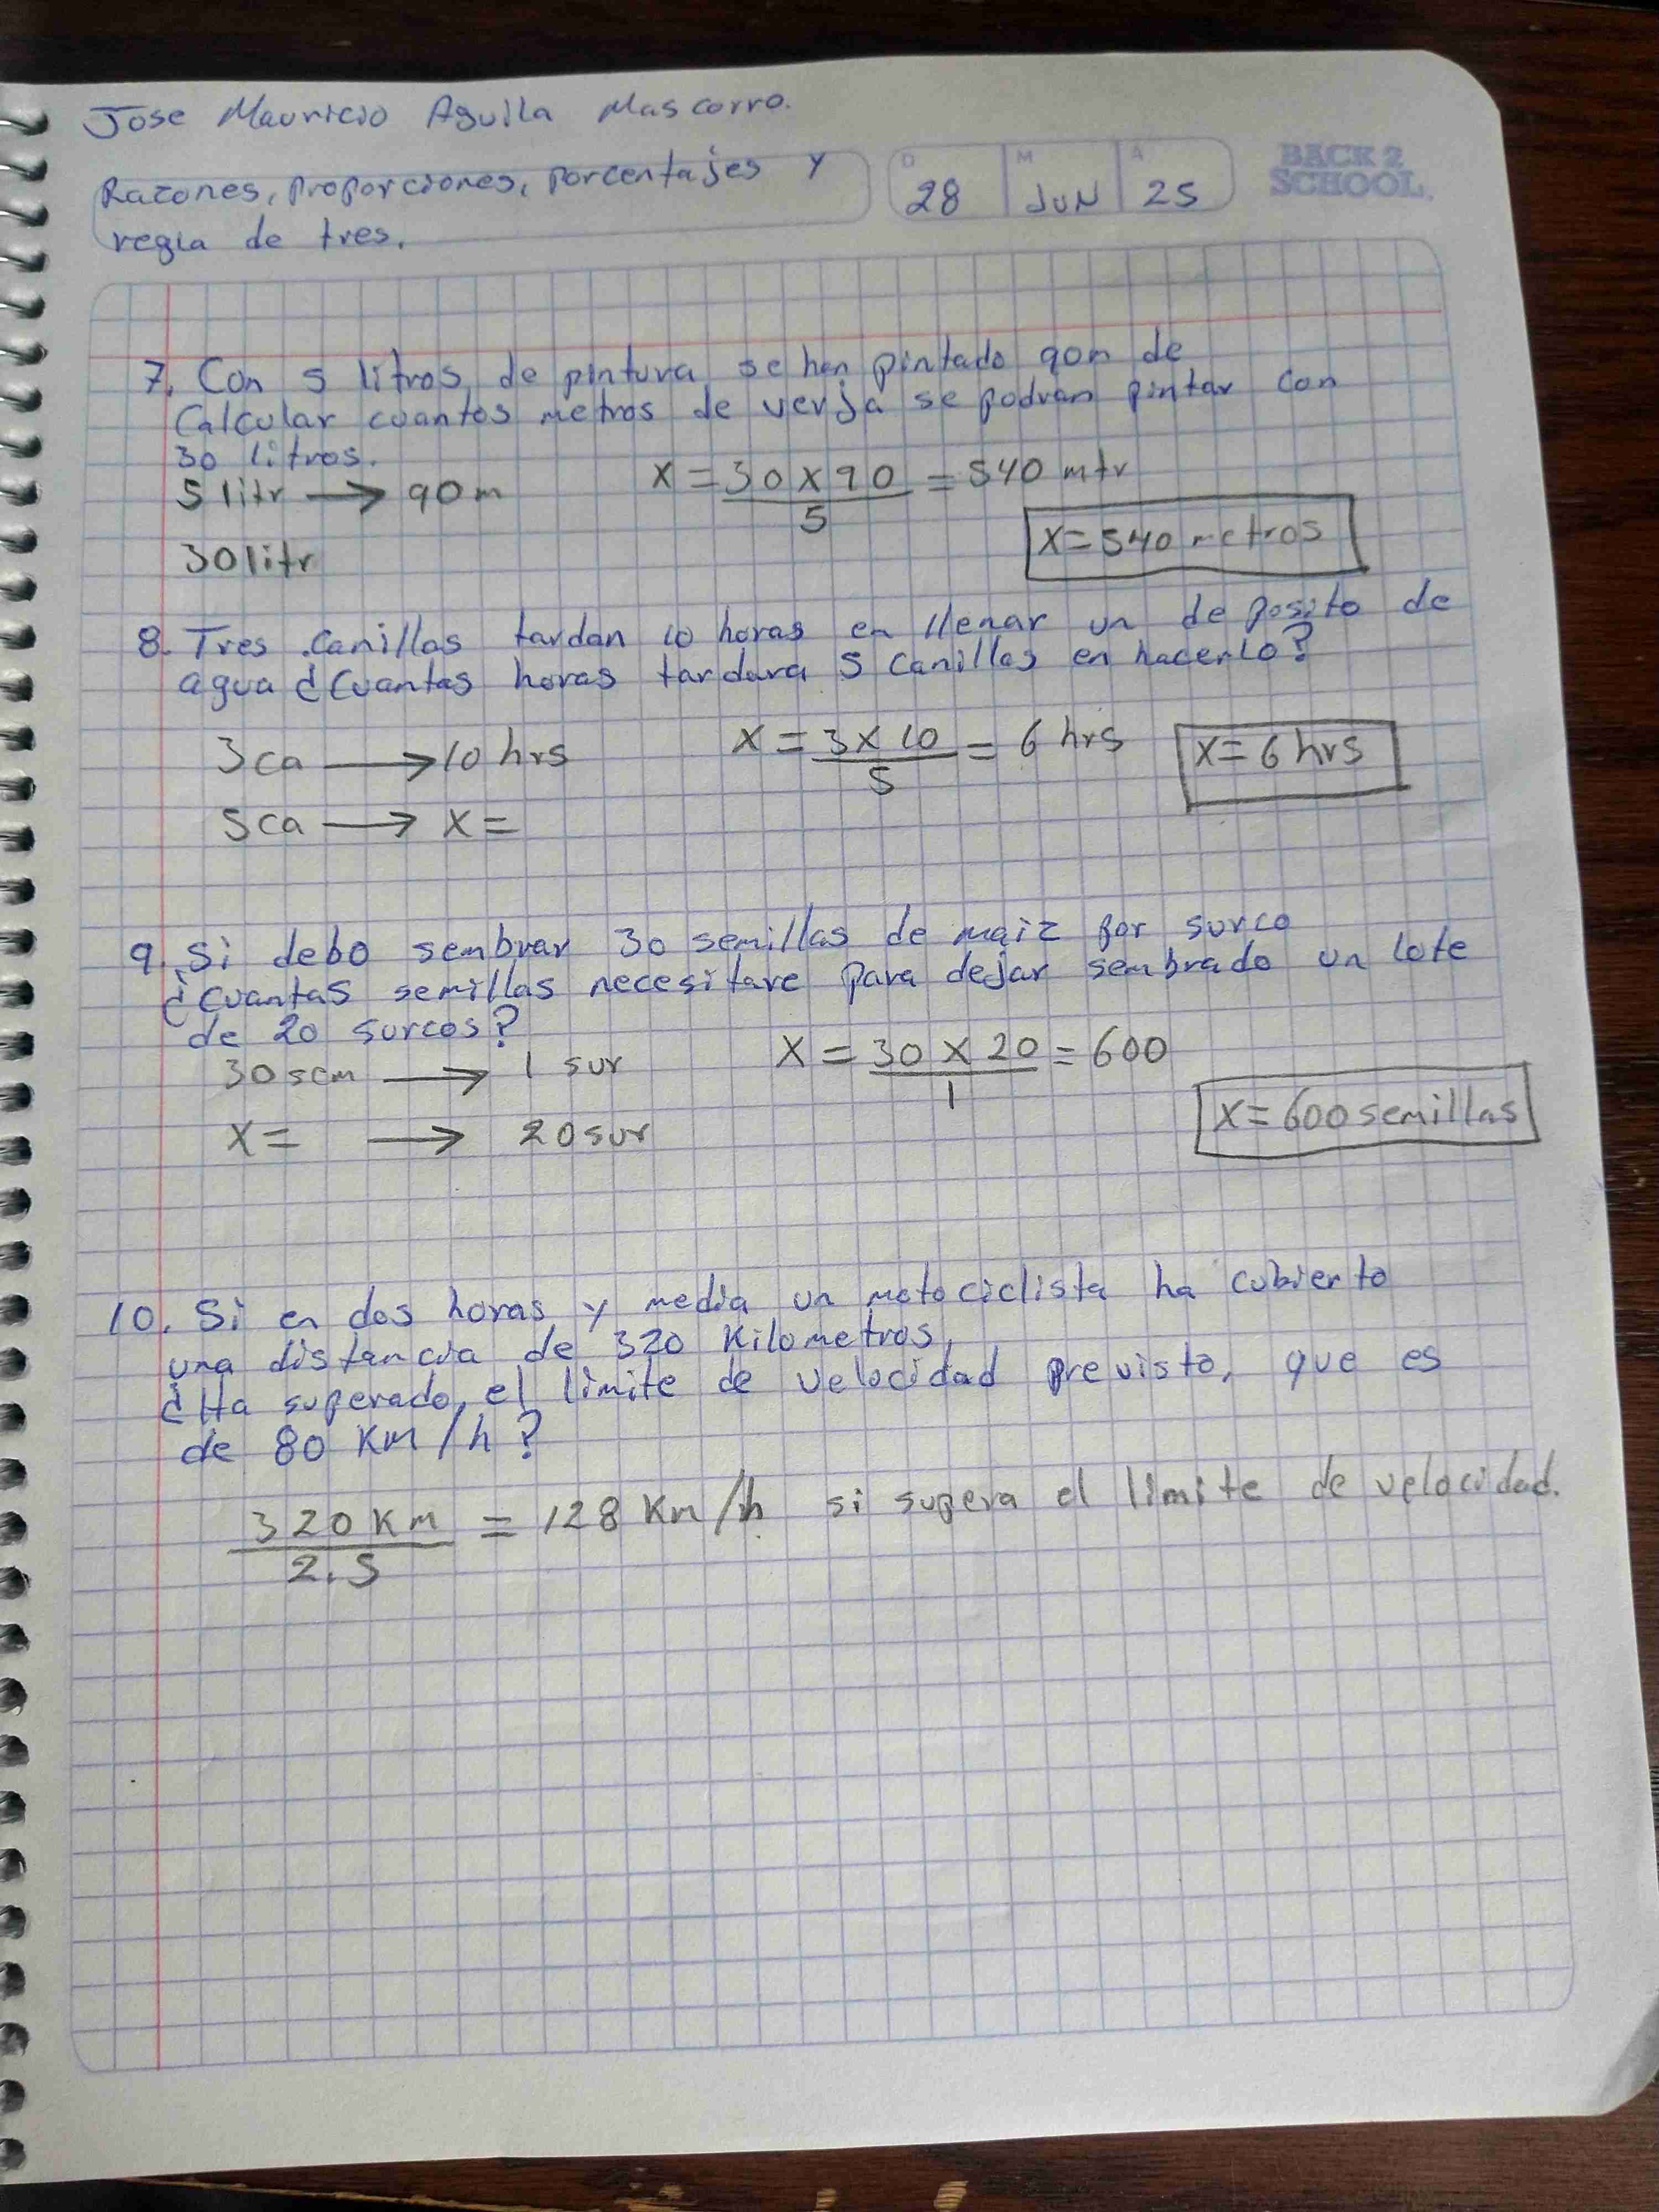 Jose Mauricio Aguila Mascorro.
BACK 2
SCHOOL
Razones, proporciones, porcentajes y
D 28 M JUN A 25
regla de tres.
7. Con 5 litros de pintura se han pintado 90m de
Calcular cuantos metros de verja se podran pintar con
30 litros.
5 litr → 90m
X = 30 x 90 / 5 = 540 mtr
X = 540 metros
30 litr
8. Tres canillas tardan 10 horas en llenar un deposito de
agua ¿Cuantas horas tardara 5 canillas en hacerlo?
3ca → 10 hrs
X = 3 x 10 / 5 = 6 hrs
X = 6 hrs
5ca → X =
9. Si debo sembrar 30 semillas de maiz por surco
¿Cuantas semillas necesitare para dejar sembrado un lote
de 20 surcos?
30 sem → 1 sur
X = 30 x 20 / 1 = 600
X = 600 semillas
X = → 20 sur
10. Si en dos horas y media un motociclista ha cubierto
una distancia de 320 Kilometros,
¿Ha superado el limite de velocidad previsto, que es
de 80 KM/h?
320 KM / 2.5 = 128 Km/h si supera el limite de velocidad.